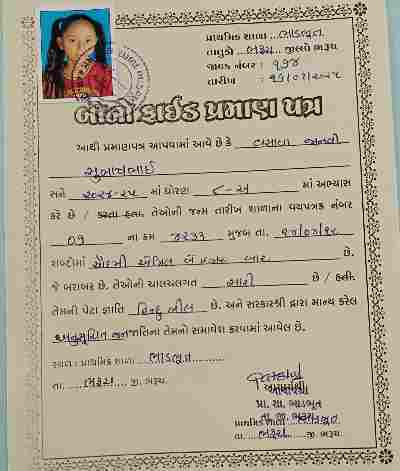 પ્રાથમિક શાળા ભાડભૂત
તાલુકો ભરૂચ જીલ્લો ભરૂચ
જાવક નંબર : ૧૭૪
તારીખ :
બોનાફાઈડ પ્રમાણ પત્ર
આથી પ્રમાણપત્ર આપવામાં આવે છે કે વસાવા જાનવી
સુભાષભાઈ
સને ૨૦૨૪-૨૫ માં ધોરણ ૮-અ માં અભ્યાસ
કરે છે / કરતા હતા. તેઓની જન્મ તારીખ શાળાના વયપત્રક નંબર
૦૧ ના ક્રમ ૪૨૩૩ મુજબ તા.
શબ્દોમાં ચૌદમી એપ્રિલ બે હજાર બાર છે.
જે બરાબર છે. તેઓની ચાલચલગત સારી છે / હતી.
તેમની પેટા જ્ઞાતિ હિન્દુ ભીલ છે. અને સરકારશ્રી દ્વારા માન્ય કરેલ
અનુસૂચિત જનજાતિમાં તેમનો સમાવેશ કરવામાં આવેલ છે.
સ્થળ : પ્રાથમિક શાળા ભાડભૂત
તા. ભરૂચ જી. ભરૂચ
પ્રા. શા. ભાડભૂત
તા. જી. ભરૂચ
પ્રાથમિક શાળા ભાડભૂત
તા. ભરૂચ જી. ભરૂચ